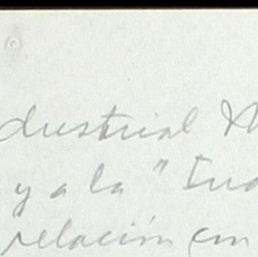 dustrial
y a la "Ind
relación con